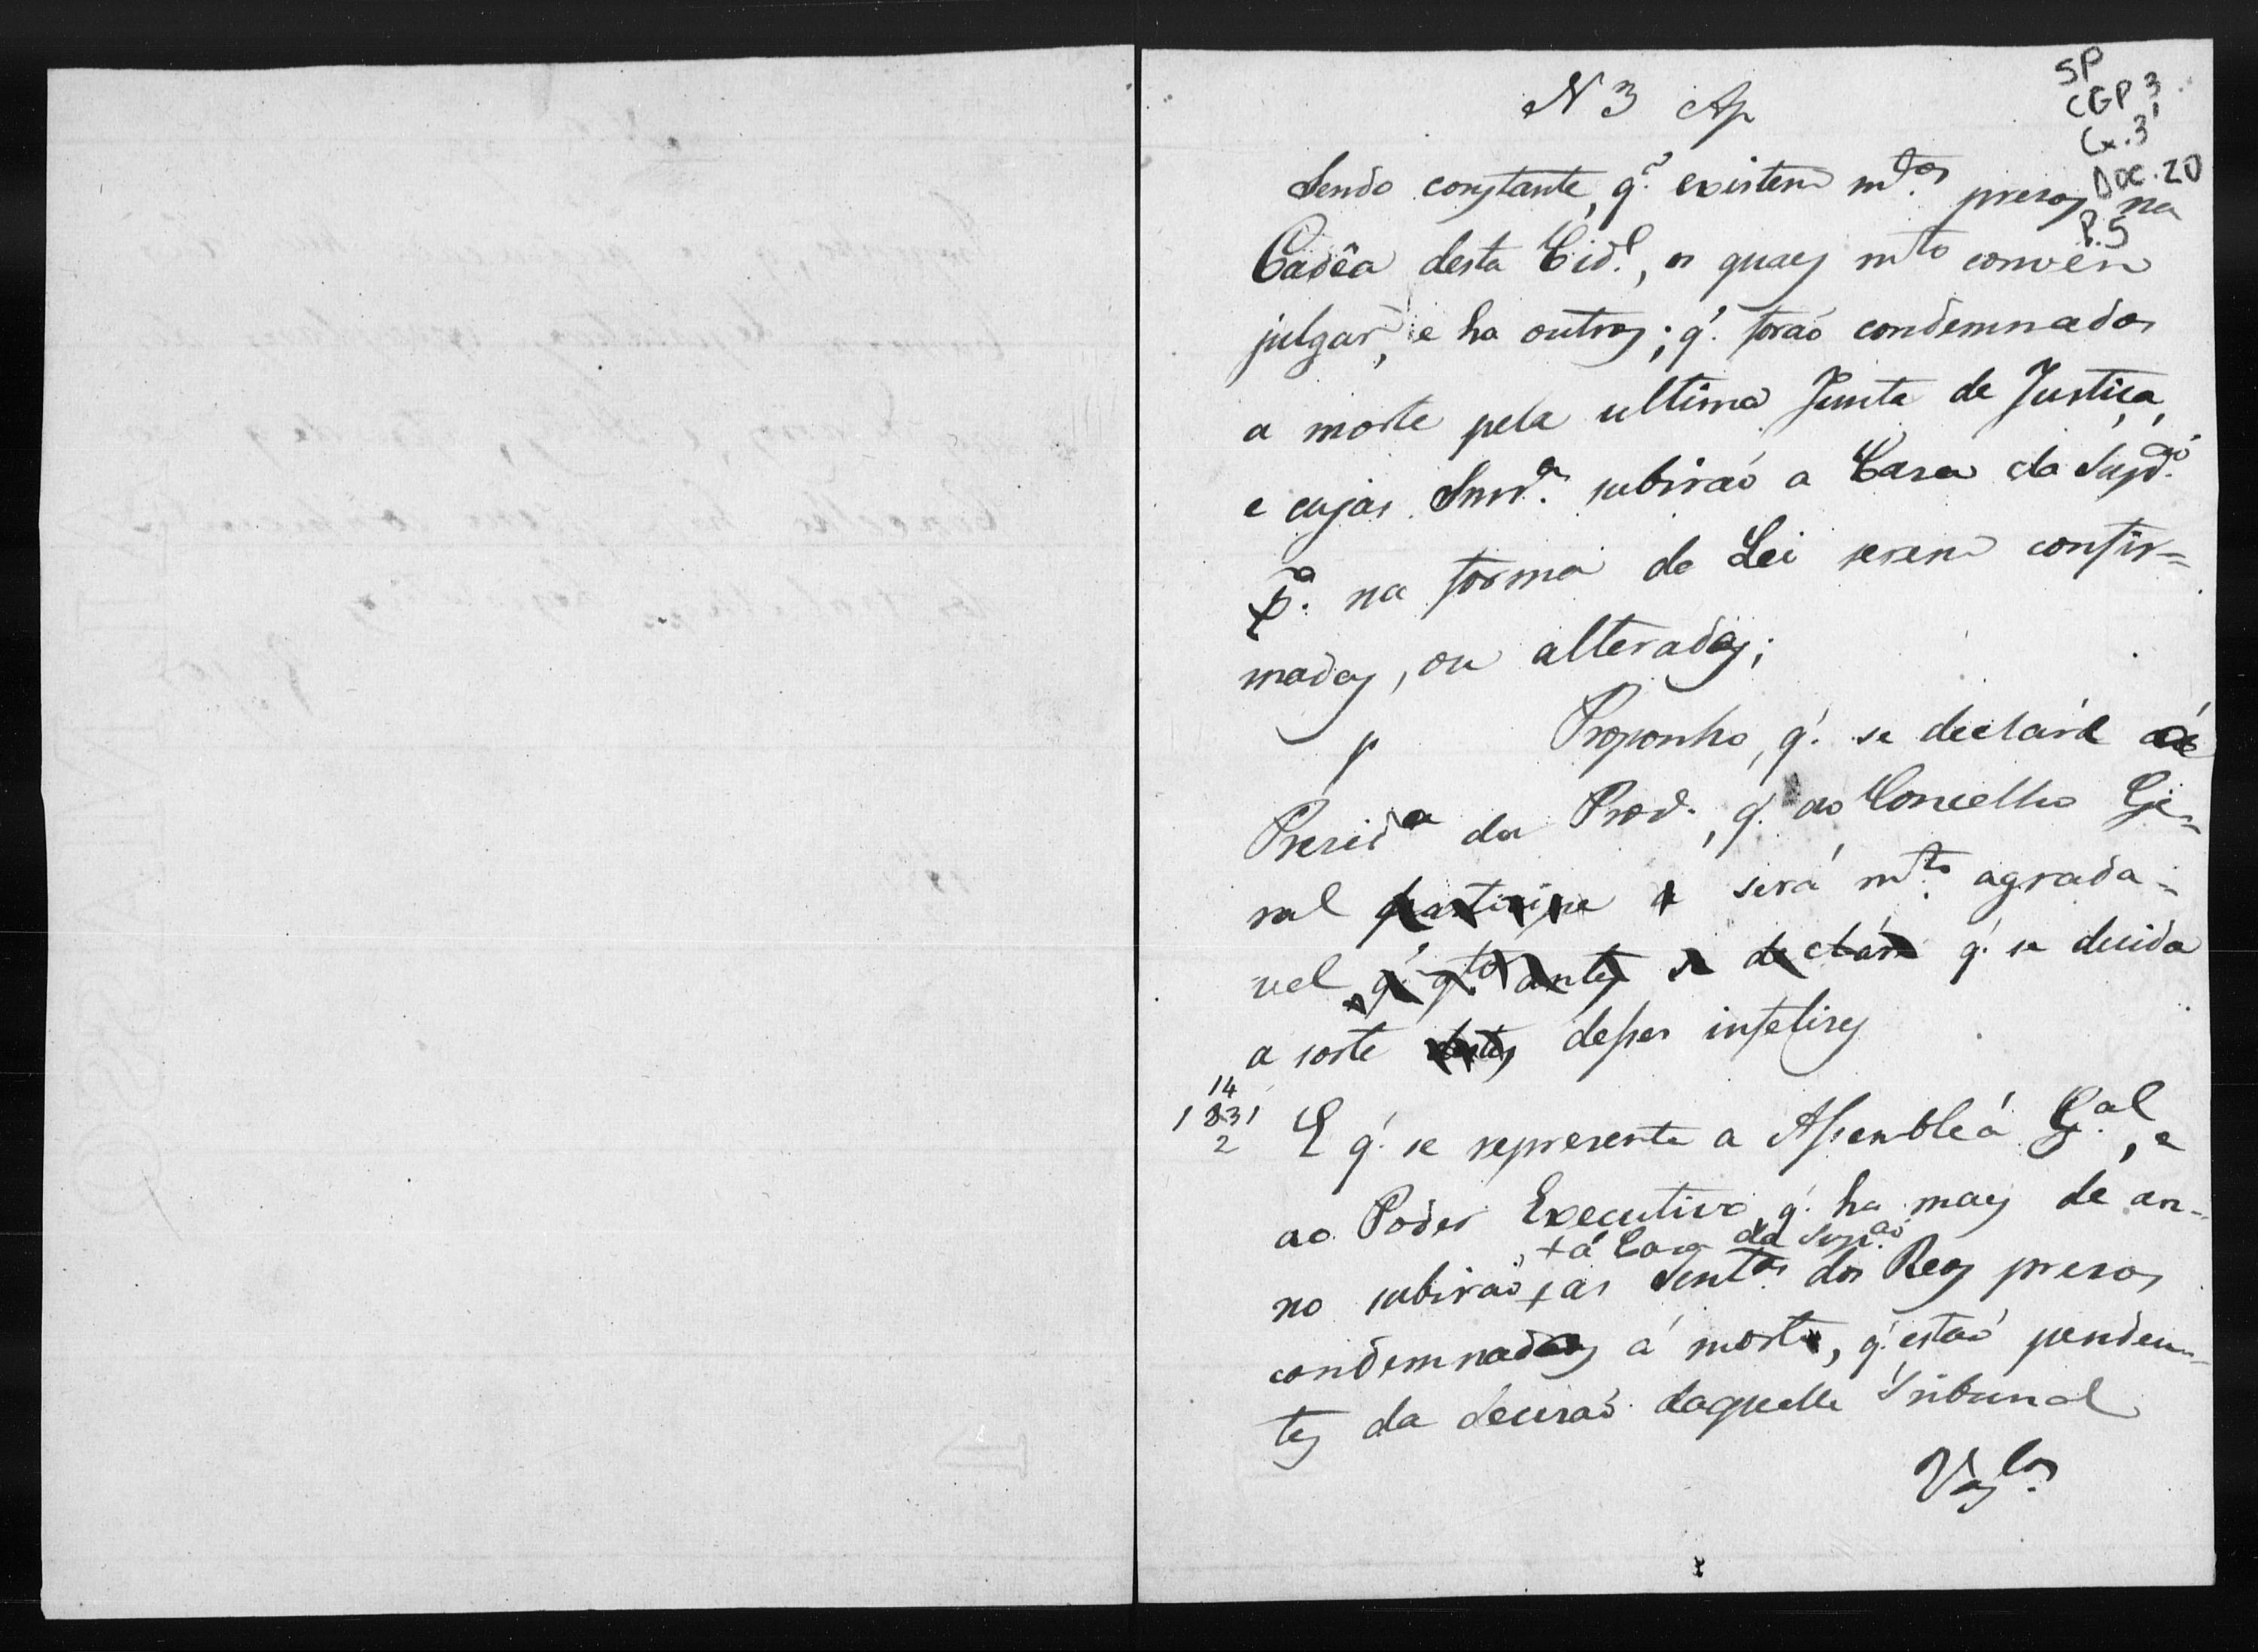 SP
CGP 3
Cx. 3
Doc. 20
P. 5
N 3 Ap
Sendo constante, q.' existem m.tos presos na
Cadêa desta Cid.e, os quaes m.to convèm
julgar, e ha outros; q.' forão condemnados
a morte pela ultima Junta de Justiça,
e cujas Snn.as subirão a Casa da Supp.ão
p.a na forma da Lei serem confir=
madas, ou alteradas;
Proponho, q.' se declare
Presid.a da Prov.a, q.' ao Concelho Ge=
ral participe será m.to agrada=
vel q.' q.to antes se declare q.' se decida
a sorte destes desses infelises
14
1831
2
E q.' se represente a Assembleá G.al, e
ao Poder Executivo, q.' ha mais de an=
+ á Casa da Supp.ão
no subirão + as Sent.as dos Reos presos
condemnados á morte, q.' estão penden=
tes da decisão daquelle Tribunal
Vas.los